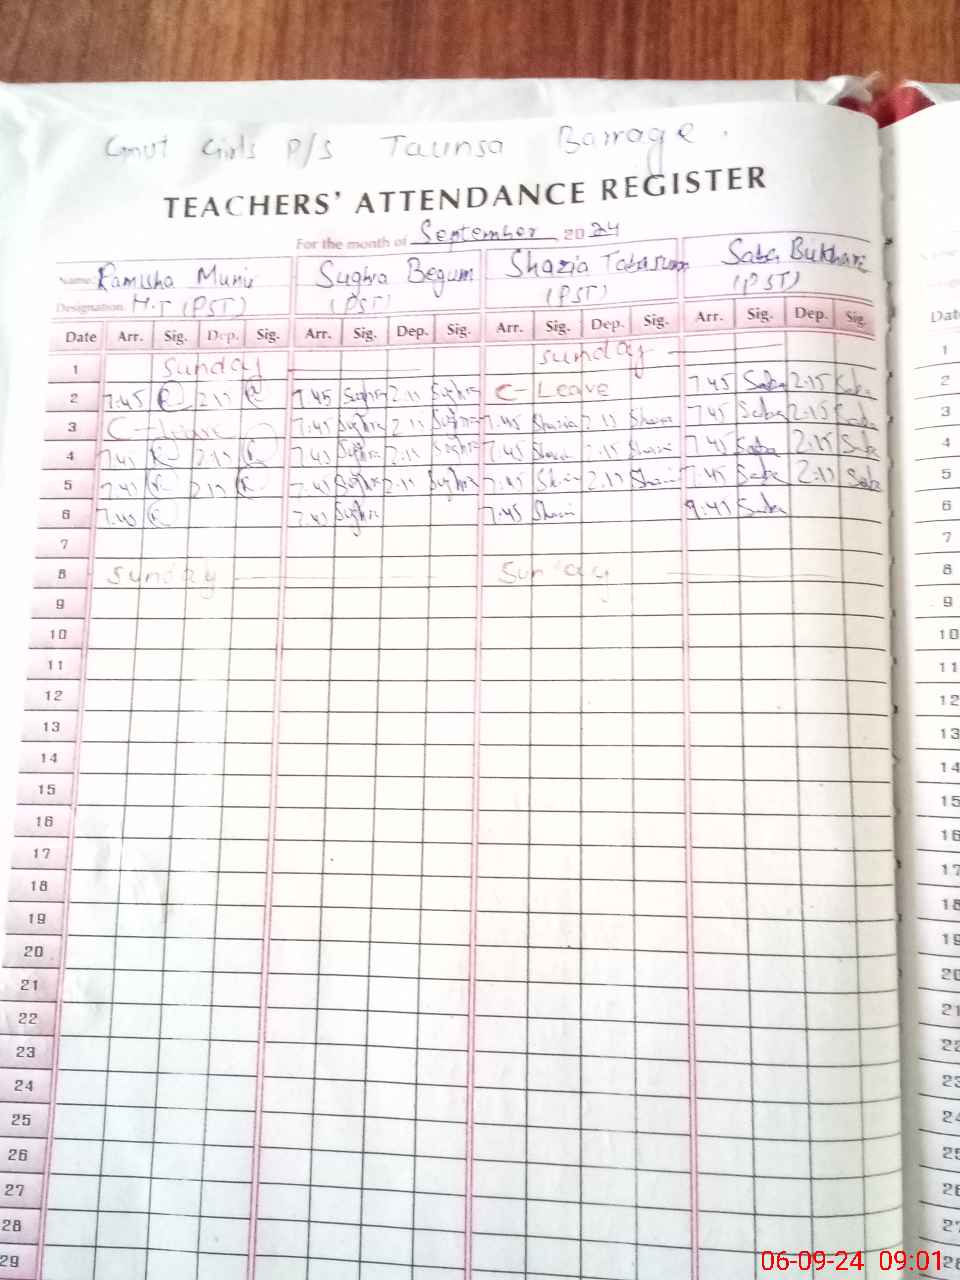 Gmvt Girls P/S Taunsa Barrage.
TEACHERS' ATTENDANCE REGISTER
For the month of September 2024
Name: Ramisha Munir Sughra Begum Shazia Tabasum Saba Bukhari
Designation H.T (PST) (PST) (PST) (PST)
Date Arr. Sig. Dep. Sig. Arr. Sig. Dep. Sig. Arr. Sig. Dep. Sig. Arr. Sig. Dep. Sig.
1 Sunday Sunday
2 7:45 2:15 7:45 Sughra 2:15 Sughra C-Leave 7:45 Saba 2:15 Saba
3 C-Leave 7:45 Sughra 2:15 Sughra 7:45 Shazia 2:15 Shazia 7:45 Saba 2:15 Saba
4 7:45 2:15 7:45 Sughra 2:15 Sughra 7:45 Shazia 2:15 Shazia 7:45 Saba 2:15 Saba
5 7:45 2:15 7:45 Sughra 2:15 Sughra 7:45 Shazia 2:15 Shazia 7:45 Saba 2:15 Saba
6 7:45 7:45 Sughra 7:45 Shazia Saba
7
8 Sunday Sunday
9
10
11
12
13
14
15
16
17
18
19
20
21
22
23
24
25
26
27
28
29
Date
1
2
3
4
5
6
7
8
9
10
11
12
13
14
15
16
17
18
19
20
21
22
23
24
25
26
27
28
06-09-24 09:01